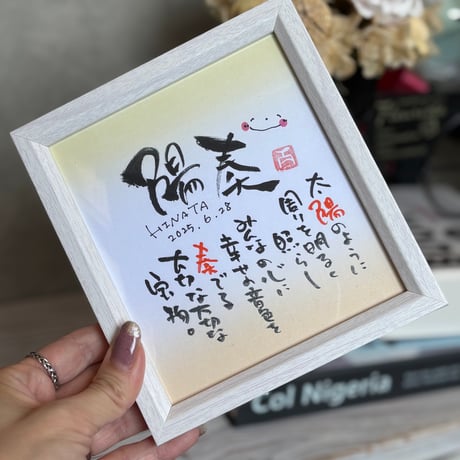 陽奏
HINATA
2025.6.28
太陽のように
周りを明るく
照らし
みんなの心に
幸せな音色を
奏でる
大切な大切な
宝物。
Col Nigeria